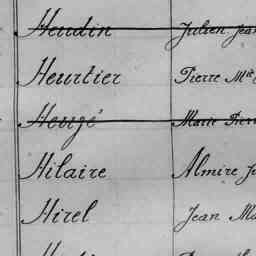 Heudin Julien Jean
Heurtier Pierre Mie
Heuzé Marie Pierre
Hilaire Almire
Hirel Jean